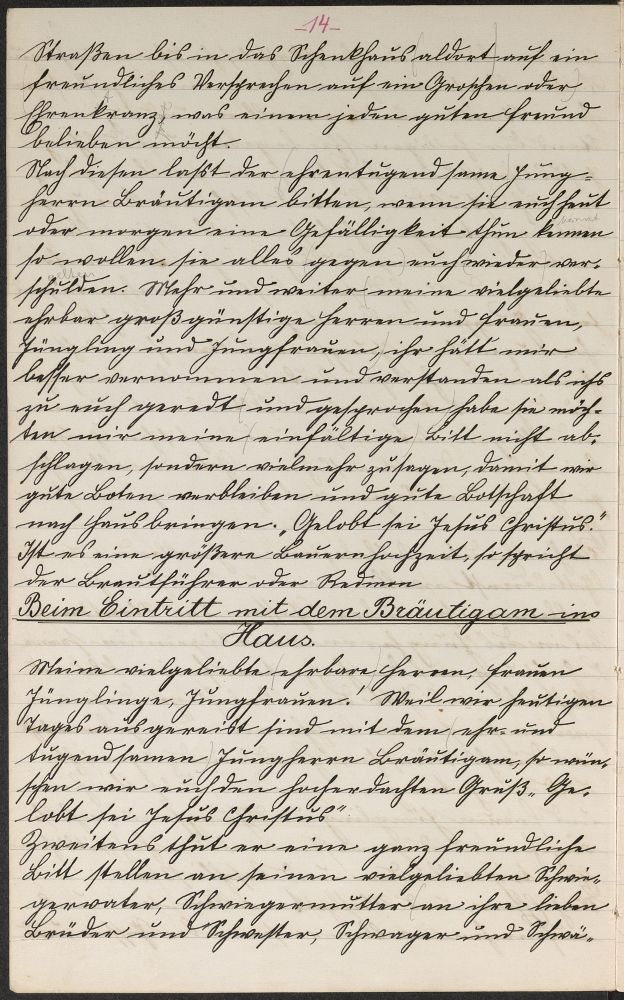 -14-
Straßen bis in das Schenkhaus aldort auf ein
freundliches Versprechen auf ein Groschen oder
Ehrenkranz, was einem jeden guten Freund
belieben möcht.
Nach diesen lasst der ehrentugendsame Jung-
herrn Bräutigam bitten, wenn sie euch heut
oder morgen eine Gefälligkeit thun kennen
so wollen sie alles gegen euch wieder ver-
schulden. Mehr und weiter meine vielgeliebte
ehrbar großgünstige Herren und Frauen,
Jüngling und Jungfrauen, ihr hätt mir
besser vernommen und verstanden als ichs
zu euch geredt und gesprochen habe sie möch-
ten mir meine einfältige Bitt nicht ab-
schlagen, sondern vielmehr zusagen, damit wir
gute Boten verbleiben und gute Botschaft
nach Haus bringen. "Gelobt sei Jesus Christus."
Ist es eine größere Bauernhochzeit, so spricht
der Brautführer oder Redmon
Beim Eintritt mit dem Bräutigam ins
Haus.
Meine vielgeliebte ehrbare Herren, Frauen
Jünglinge, Jungfrauen! Weil wir heutigen
Tages ausgereist sind mit dem ehr- und
tugendsamen Jungherrn Bräutigam, so wün-
schen wir euch den hocherdachten Gruß "Ge-
lobt sei Jesus Christus"
Zweitens thut er eine ganz freundliche
Bitt stellen an seinen vielgeliebten Schwie-
gervater, Schwiegermutter an ihre lieben
Brüder und Schwester, Schwager und Schwä-